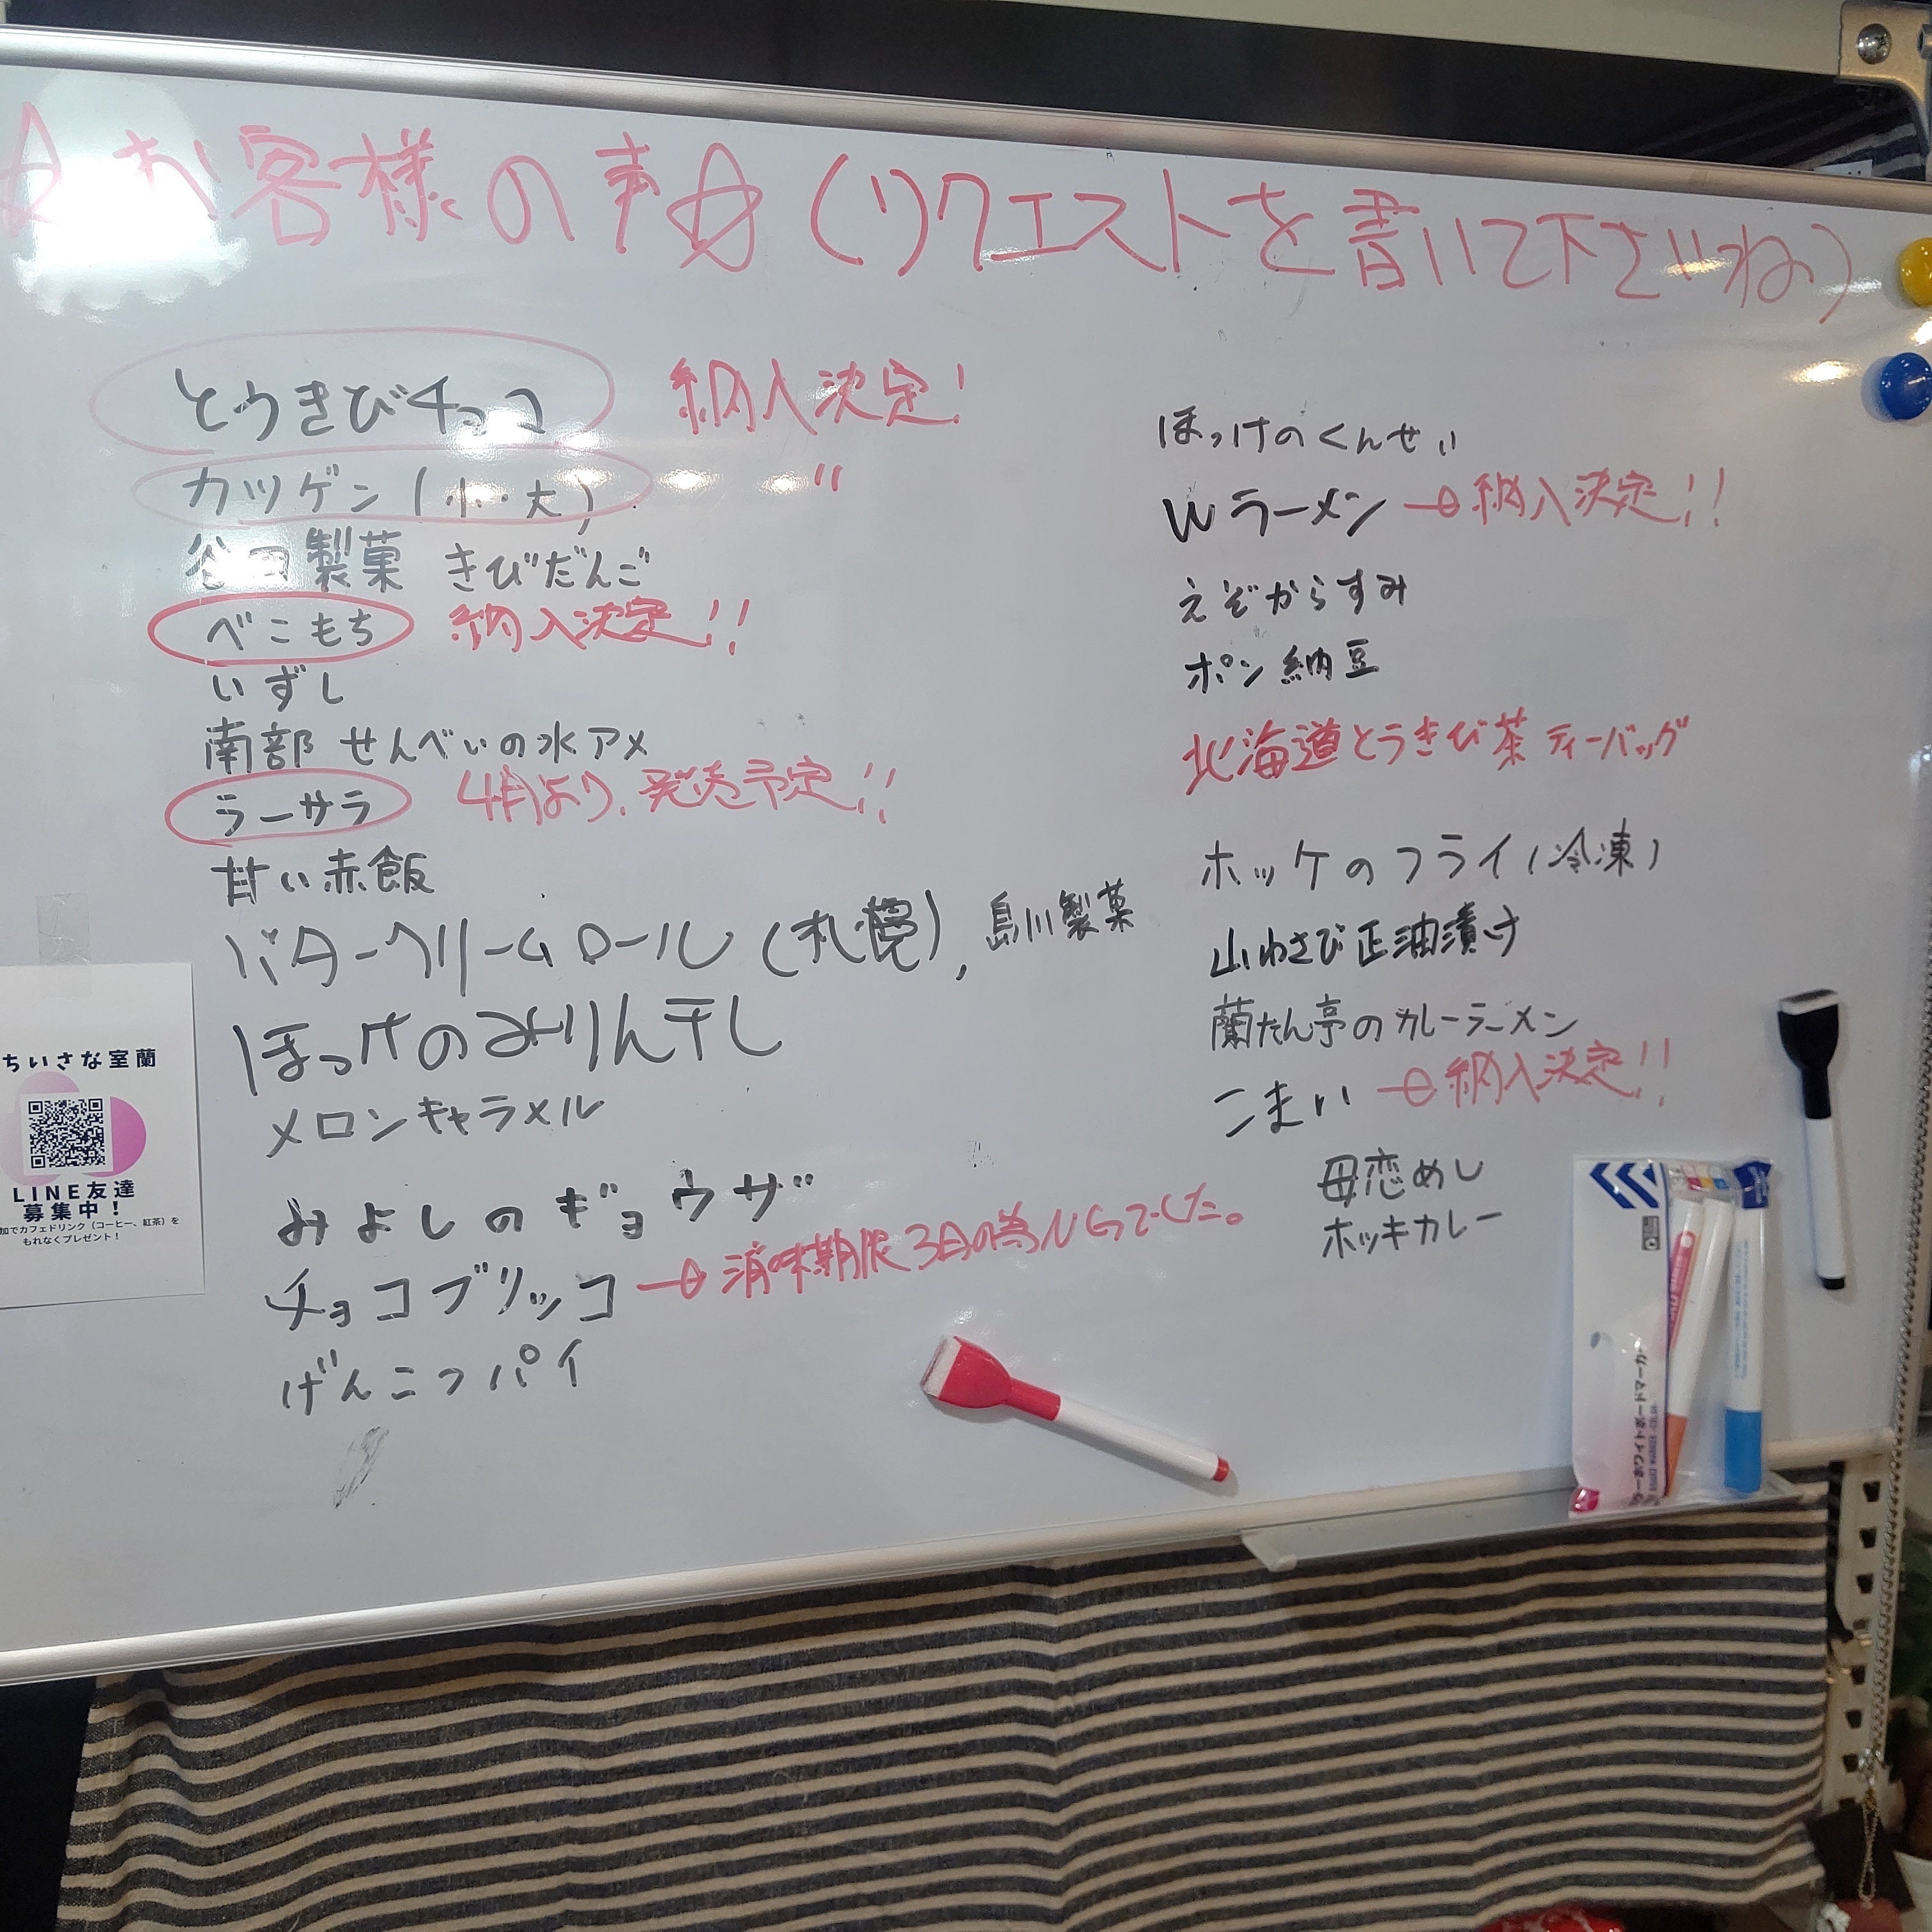 ☆お客様の声☆(リクエストを書いて下さいね)
とうきびチョコ 納入決定!
カツゲン(小・大) 〃
谷田製菓 きびだんご
べこもち 納入決定!!
いずし
南部せんべいの水アメ
ラーサラ 4月より、発売予定!!
甘い赤飯
バタークリームロール(札幌),島川製菓
ほっけのみりん干し
メロンキャラメル
みよしのギョウザ
チョコブリッコ→消味期限3日の為NGでした。
げんこつパイ
ほっけのくんせい
Wラーメン→納入決定!!
えぞからすみ
ポン納豆
北海道とうきび茶ティーバッグ
ホッケのフライ(冷凍)
山わさび正油漬け
蘭たん亭のカレーラーメン
こまい→納入決定!!
母恋めし
ホッキカレー
ちいさな室蘭
LINE友達
募集中!
加でカフェドリンク(コーヒー、紅茶)を
もれなくプレゼント!
ホワイトボードマーカー